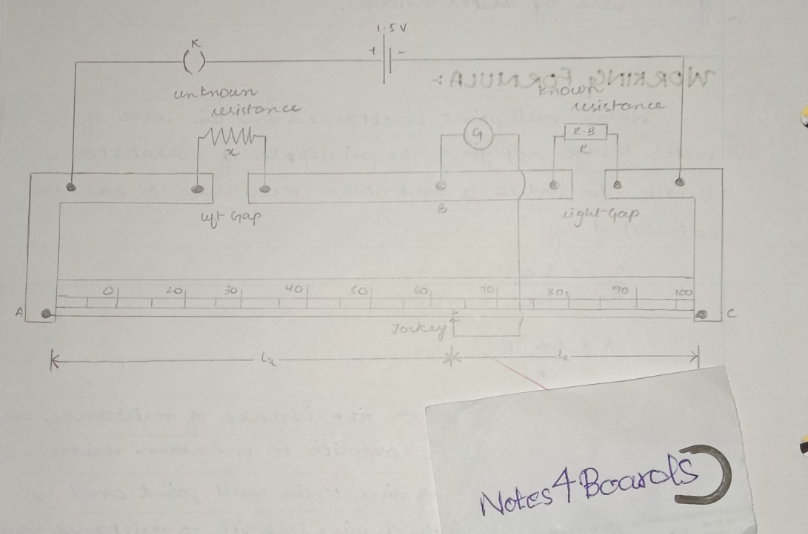 1.5 V
K
+ -
unknown
resistance
x
G
known
resistance
R.B
R
B
left Gap
right Gap
0 20 30 40 50 60 70 80 90 100
A
C
Jockey
Lx
Notes4Boards
WORKING FORMULA:-